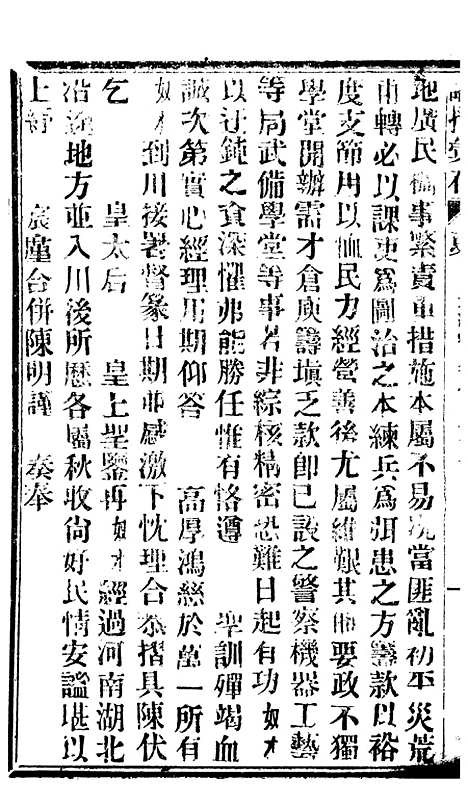 地廣民稠事繁責重措施本屬不易况當匪亂初平災荒
甫轉必以課吏爲圖治之本練兵爲弭患之方籌款以裕
度支節用以恤民力經營善後尤屬維艱其他要政不獨
學堂開辦需才倉庾籌塡乏款卽已設之警察機器工藝
等局武備學堂等事若非綜核精密恐難日起有功奴才
以迂鈍之資深懼弗能勝任惟有恪遵 聖訓殫竭血
誠次第實心經理用期仰答 高厚鴻慈於萬一所有
奴才到川接署督篆日期並感激下忱理合恭摺具陳伏
乞 皇太后 皇上聖鑒再奴才經過河南湖北
沿途地方並入川後所歷各屬秋收尙好民情安謐堪以
上紓 宸廑合併陳明謹 奏奉